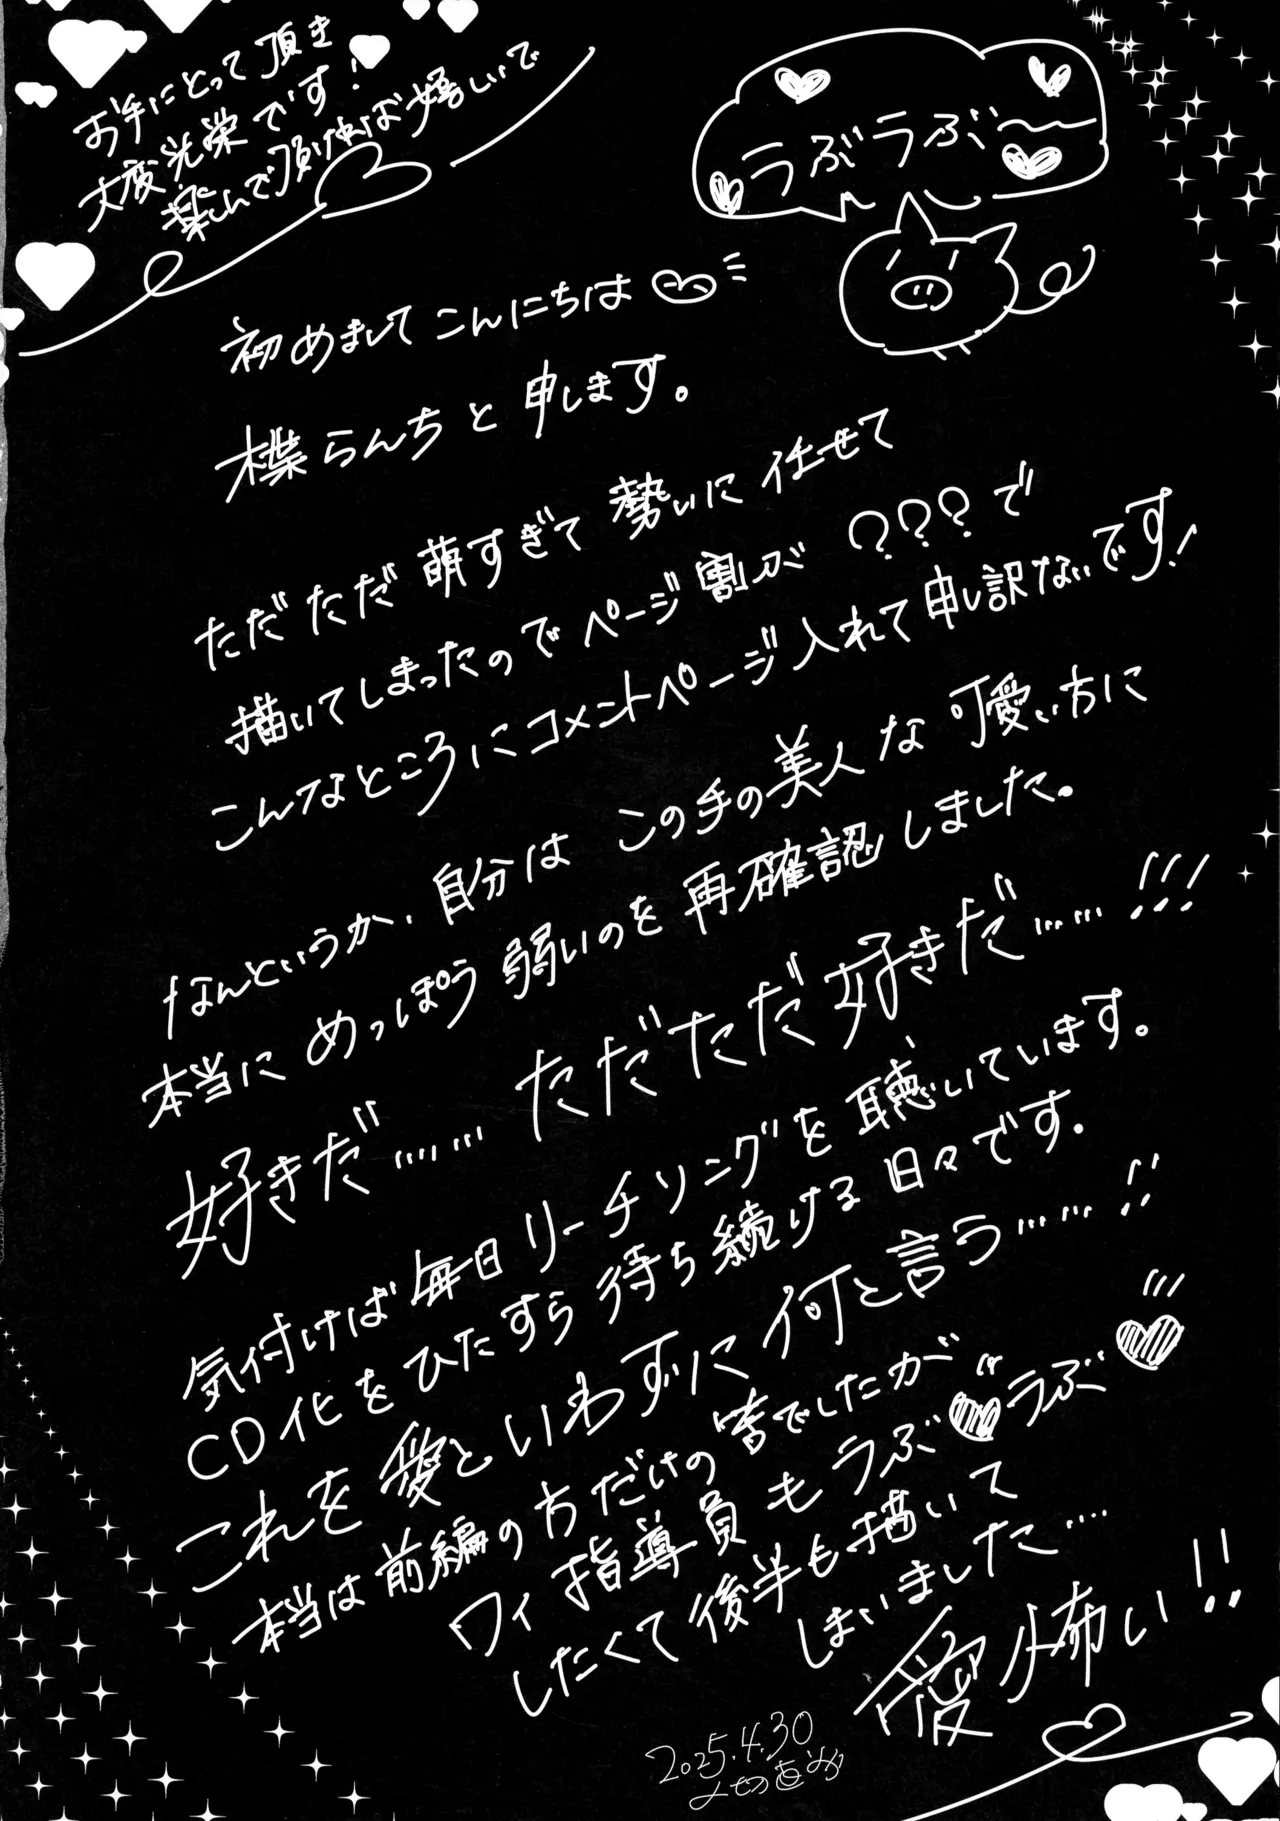 お手にとって頂き
大変光栄です!
楽しんで頂ければ嬉しいで
ラぶラぶ〜
初めましてこんにちは
楪らんちと申します。
ただただ萌すぎて勢いに任せて
描いてしまったのでページ割が???で
こんなところにコメントページ入れて申し訳ないです!
なんというか、自分はこの手の美人な可愛い方に
本当にめっぽう弱いのを再確認しました。
好きだ……ただただ好きだ……!!!
気付けば毎日リーチソングを聴いています。
CD化をひたすら待ち続ける日々です。
これを愛といわずに何と言う……!!
本当は前編の方だけの筈でしたが
ワイ指導員もラぶラぶ
したくて後半も描いて
しまいました……
愛怖い!!
2025.4.30